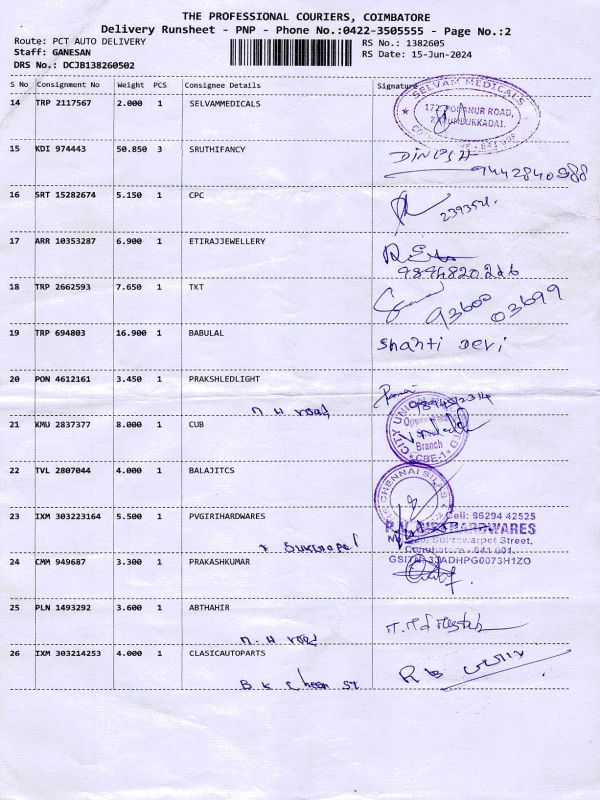 THE PROFESSIONAL COURIERS, COIMBATORE
Delivery Runsheet - PNP - Phone No.:0422-3505555 - Page No.:2
Route: PCT AUTO DELIVERY RS No.: 1382605
Staff: GANESAN RS Date: 15-Jun-2024
DRS No.: DCJB138260502
S No Consignment No Weight PCS Consignee Details Signature
14 TRP 2117567 2.000 1 SELVAMMEDICALS
SELVAM MEDICALS
15 KDI 974443 50.850 3 SRUTHIFANCY DINESH
9442840988
16 SRT 15282674 5.150 1 CPC
17 ARR 10353287 6.900 1 ETIRAJJEWELLERY
9894820226
18 TRP 2662593 7.650 1 TKT
93600 03699
19 TRP 694803 16.900 1 BABULAL Shanti Devi
20 PON 4612161 3.450 1 PRAKSHLEDLIGHT
n H road
21 KMU 2837377 8.000 1 CUB
CITY UNION
Branch
CBE-1
22 TVL 2807044 4.000 1 BALAJITCS
CHENNAI SILKS
23 IXM 303223164 5.500 1 PVGIRIHARDWARES
Cell: 96294 42525
HARDWARES
Street,
Coimbatore - 641 001.
24 CMM 949687 3.300 1 PRAKASHKUMAR
25 PLN 1493292 3.600 1 ABTHAHIR
n. H road
26 IXM 303214253 4.000 1 CLASICAUTOPARTS
B K Chetti St